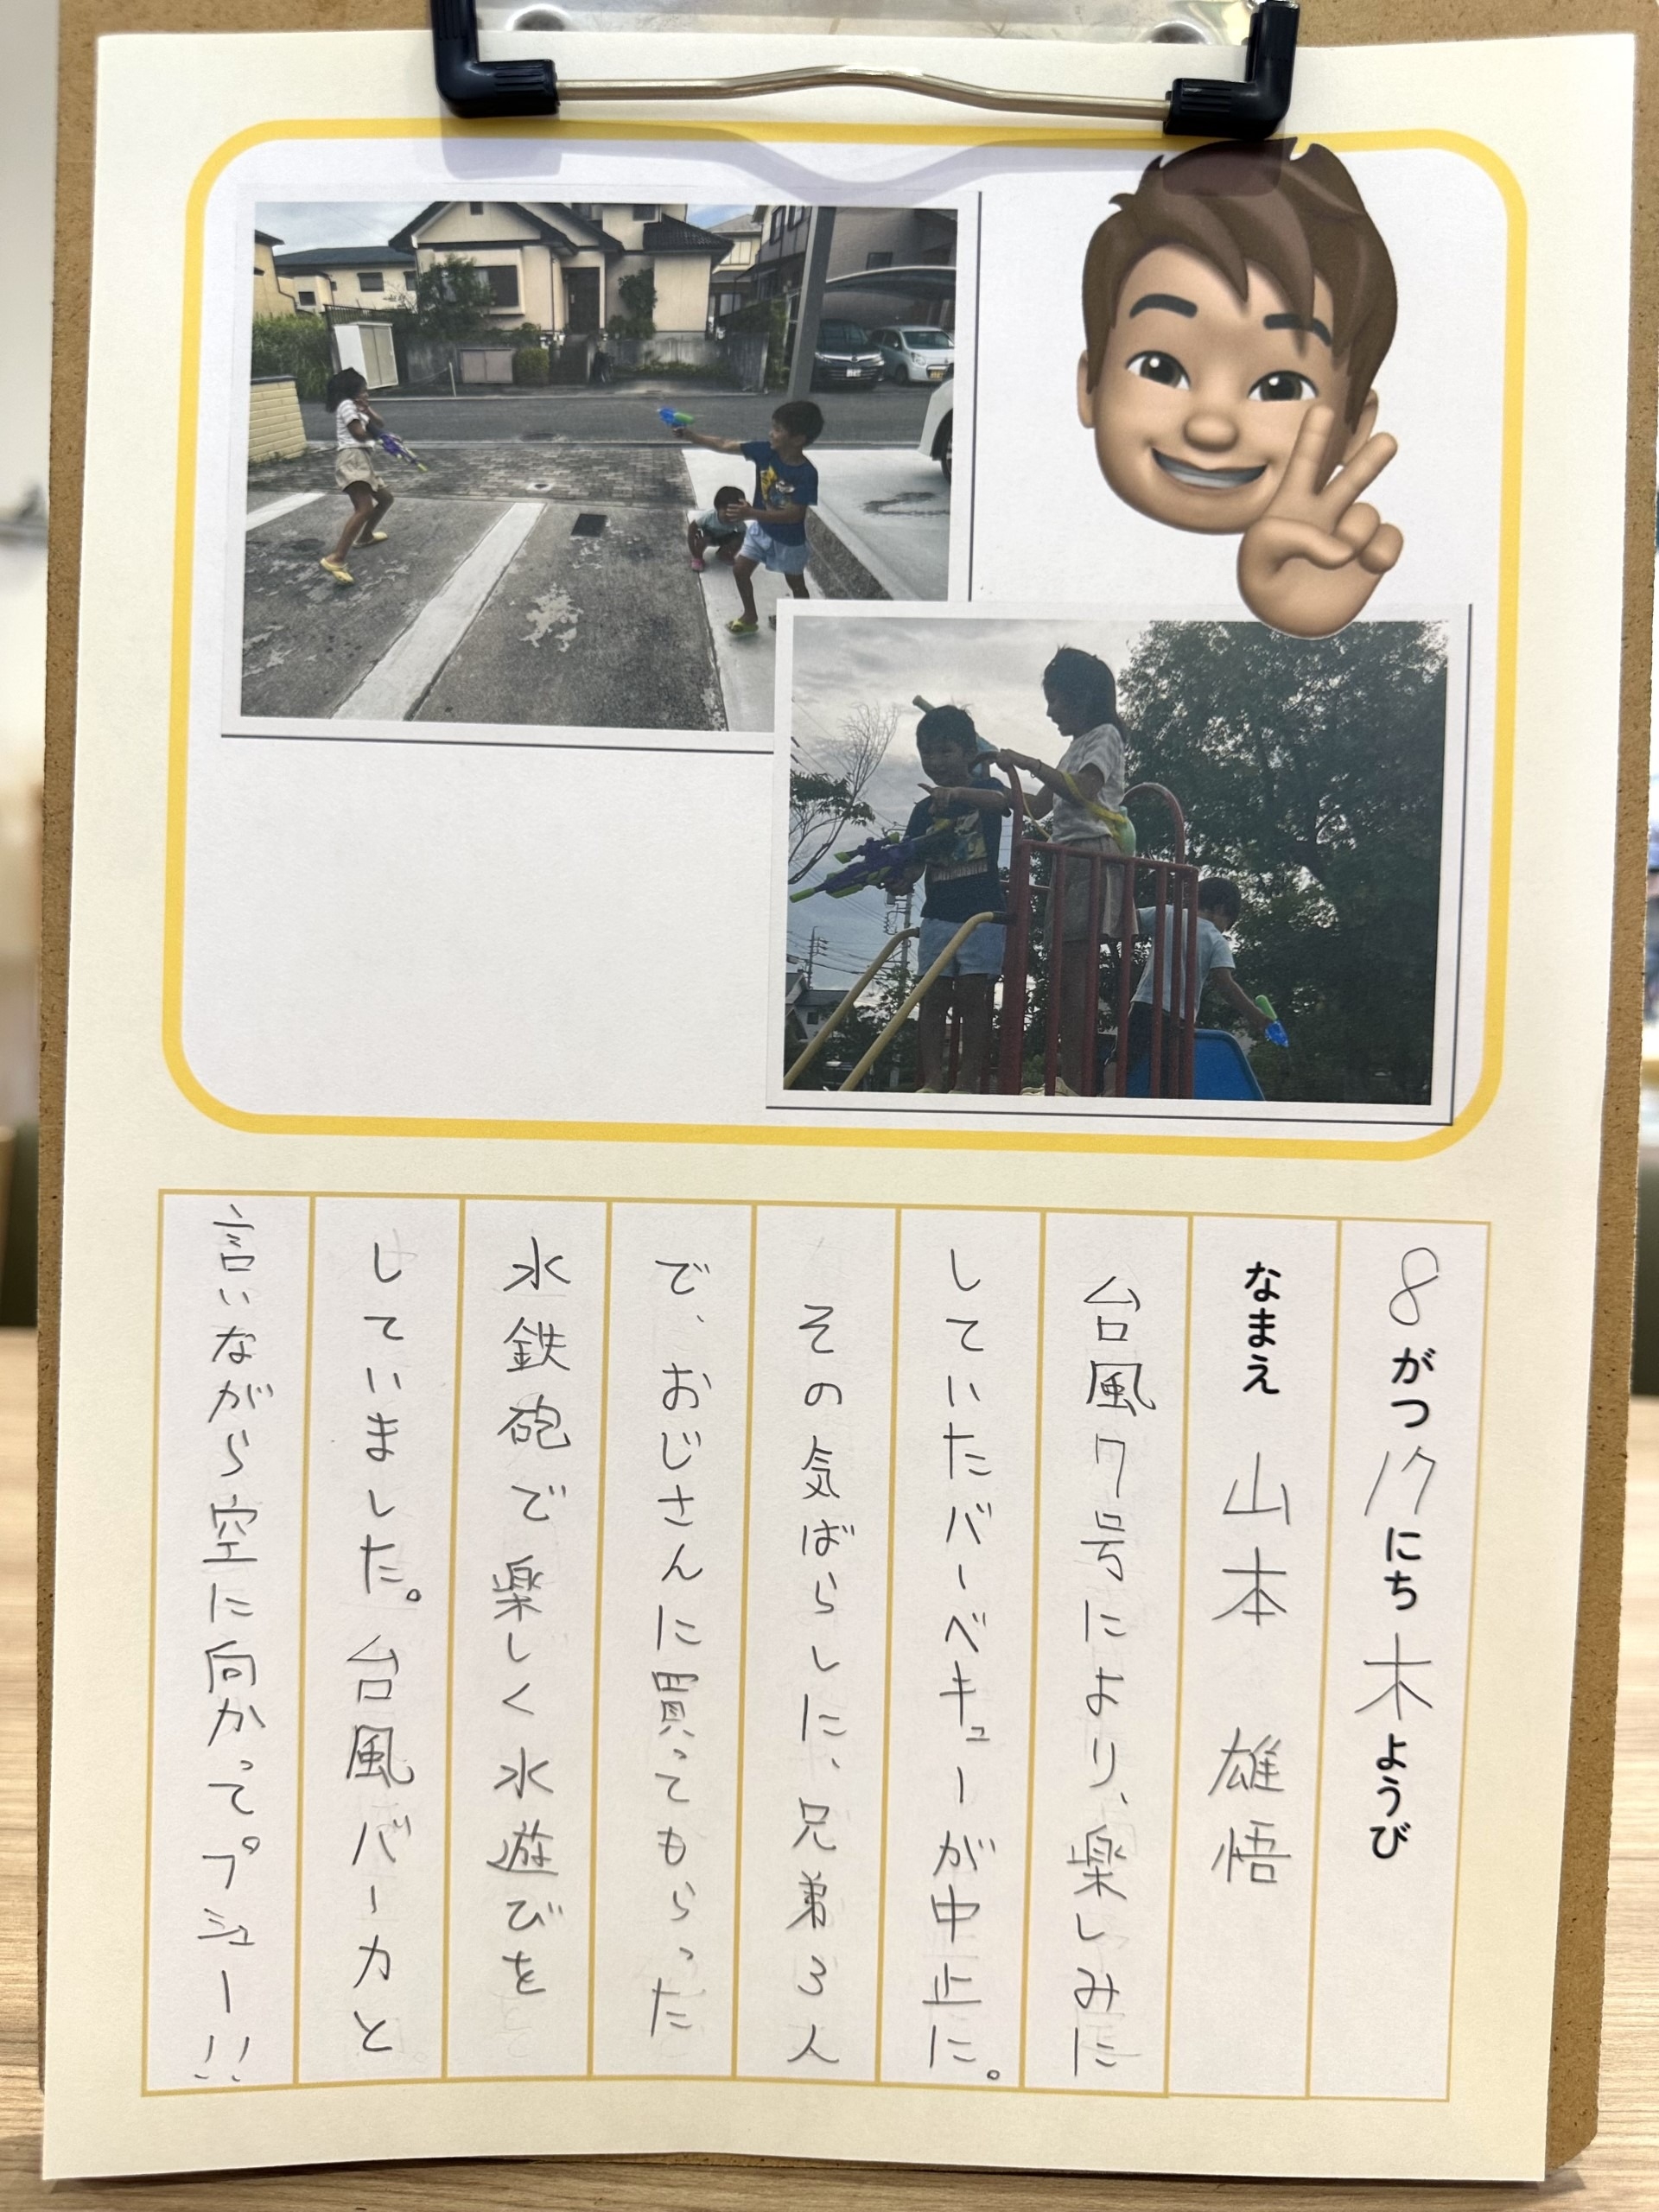 8がつ17にち木ようび
なまえ 山本 雄悟
台風7号により、楽しみに
していたバーベキューが中止に。
その気ばらしに、兄弟3人
で、おじさんに買ってもらった
水鉄砲で楽しく水遊びを
していました。台風バーカと
言いながら空に向かってプシュー!!